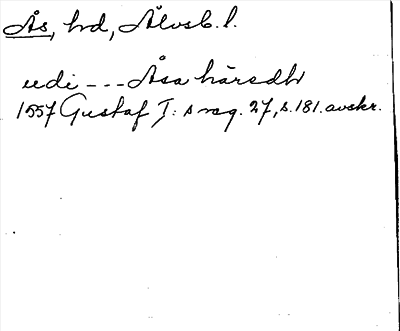 Ås, hd, Älvsb. l.
udi --- Åsa häredh
1557 Gustaf I:s reg. 27, s. 181. avskr.